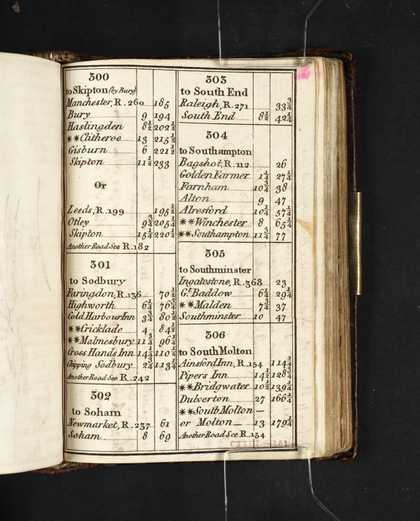 300
to Skipton (by Bury)
Manchester, R. 260 185
Bury 9 194
Haslingden 8½ 202½
**Clitheroe 13 215½
Gisburn 6 221½
Skipton 11½ 233
Or
Leeds, R. 199 195½
Otley 9¾ 205¼
Skipton 15¼ 220½
Another Road See R. 182
301
to Sodbury
Faringdon, R. 136 70
Highworth 6¼ 76
Cold Harbour Inn 3¾ 80
**Cricklade 4 84
**Malmesbury 11¾ 96¼
Cross Hands Inn 14¼ 110½
Chipping Sodbury 2¾ 113¼
Another Road See R. 242
302
to Soham
Newmarket, R. 237 61
Soham 8 69
303
to South End
Raleigh, R. 271 33¾
South End 8½ 42¼
304
to Southampton
Bagshot, R. 112 26
Golden Farmer 1¼ 27¼
Farnham 10¾ 38
Alton 9 47
Alresford 10¼ 57¼
**Winchester 8 65¼
**Southampton 11¾ 77
305
to Southminster
Ingatestone, R. 368 23
Gt. Baddow 6½ 29½
**Malden 7½ 37
Southminster 10 47
306
to South Molton
Ainsford Inn, R. 154 114
Pipers Inn 14½ 128
**Bridgwater 10½ 139¼
Dulverton 27 166¼
**South Molton
or Molton 13 179¼
Another Road See R. 154